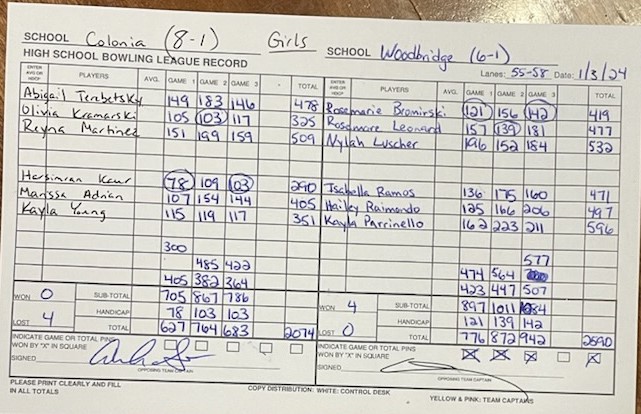 SCHOOL Colonia (8-1) Girls SCHOOL Woodbridge (6-1)
HIGH SCHOOL BOWLING LEAGUE RECORD Lanes: 55-58 Date: 1/3/24
ENTER AVG OR HDCP PLAYERS AVG. GAME 1 GAME 2 GAME 3 TOTAL ENTER AVG OR HDCP PLAYERS AVG. GAME 1 GAME 2 GAME 3 TOTAL
Abigail Terebetsky 149 183 146 478 Rosemarie Bromirski 121 156 142 419
Olivia Kramarski 105 103 117 325 Rosemare Leonard 157 139 181 477
Reyna Martinez 151 199 159 509 Nylah Luscher 196 152 184 532
Harsimran Kaur 78 109 103 290 Isabella Ramos 136 175 160 471
Marissa Adrian 107 154 144 405 Hailey Raimondo 125 166 206 497
Kayla Young 115 119 117 351 Kayla Parrinello 162 223 211 596
300 577
485 422 474 564
405 382 364 423 447 507
WON 0 SUB-TOTAL 705 867 786 WON 4 SUB-TOTAL 897 1011 1084
HANDICAP 78 103 103 HANDICAP 121 139 142
LOST 4 TOTAL 627 764 683 2074 LOST 0 TOTAL 776 872 942 2590
INDICATE GAME OR TOTAL PINS WON BY "X" IN SQUARE INDICATE GAME OR TOTAL PINS WON BY "X" IN SQUARE X X X X
SIGNED SIGNED
OPPOSING TEAM CAPTAIN OPPOSING TEAM CAPTAIN
PLEASE PRINT CLEARLY AND FILL IN ALL TOTALS COPY DISTRIBUTION: WHITE: CONTROL DESK YELLOW & PINK: TEAM CAPTAINS